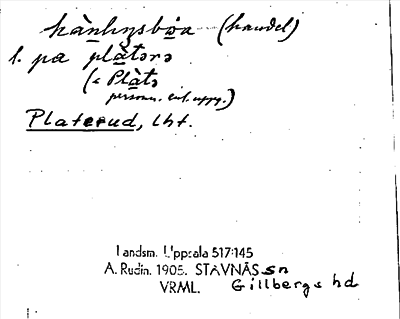 hànḷıysbơa (handel)
l. pa plàtərə
(e Plàtə
person. enl. uppg.)
Platerud, lht.
Landsm. Uppsala 517:145
A. Rudin. 1905. STAVNÄS sn
VRML. Gillbergs hd